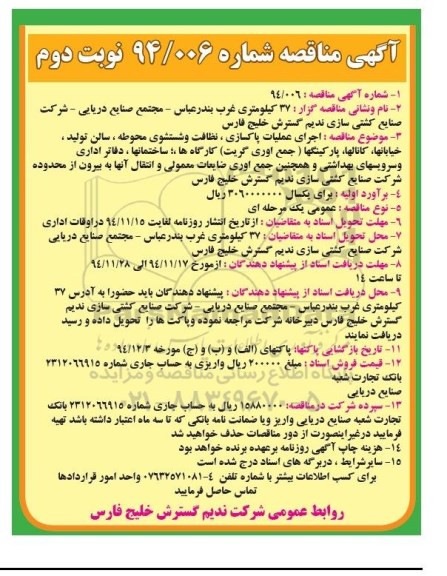 آگهی مناقصه شماره ۹۴/۰۰۶ نوبت دوم
۱- شماره آگهی مناقصه : ۹۴/۰۰۶
۲- نام ونشانی مناقصه گزار : ۳۷ کیلومتری غرب بندرعباس - مجتمع صنایع دریایی - شرکت
صنایع کشتی سازی ندیم گسترش خلیج فارس
۳- موضوع مناقصه : اجرای عملیات پاکسازی ، نظافت وشستشوی محوطه ، سالن تولید ،
خیابانها، کانالها، پارکینگها ( جمع اوری گریت) کارگاه ها ،؛ ساختمانها ، دفاتر اداری
وسرویسهای بهداشتی و همچنین جمع اوری ضایعات معمولی و انتقال آنها به بیرون از محدوده
شرکت صنایع کشتی سازی ندیم گسترش خلیج فارس
۴- برآورد اولیه : برای یکسال ۳۰۶۰۰۰۰۰۰۰ ریال
۵- نوع مناقصه : عمومی یک مرحله ای
۶- مهلت تحویل اسناد به متقاضیان : ازتاریخ انتشار روزنامه لغایت ۹۴/۱۱/۱۵ دراوقات اداری
۷- محل تحویل اسناد به متقاضیان : ۳۷ کیلومتری غرب بندرعباس - مجتمع صنایع دریایی
شرکت صنایع کشتی سازی ندیم گسترش خلیج فارس
۸- مهلت دریافت اسناد از پیشنهاد دهندگان : ازمورخ ۹۴/۱۱/۱۷ الی ۹۴/۱۱/۲۸
تا ساعت ۱۴
۹- محل دریافت اسناد از پیشنهاد دهندگان : پیشنهاد دهندگان باید حضورا به آدرس ۳۷
کیلومتری غرب بندرعباس - مجتمع صنایع دریایی - شرکت صنایع کشتی سازی ندیم
گسترش خلیج فارس دبیرخانه شرکت مراجعه نموده وپاکت ها را تحویل داده و رسید
دریافت نمایند
۱۱- تاریخ بازگشایی پاکتها: پاکتهای (الف) و (ب) و (ج) مورخه ۹۴/۱۲/۳
۱۲- قیمت فروش اسناد : مبلغ ۲۰۰۰۰۰ ریال واریزی به حساب جاری شماره ۲۳۱۲۰۶۶۹۱۵
بانک تجارت شعبه
صنایع دریایی
۱۳- سپرده شرکت درمناقصه: ۱۵۸۸۰۰۰۰۰ ریال به حساب جاری شماره ۲۳۱۲۰۶۶۹۱۵ بانک
تجارت شعبه صنایع دریایی واریز ویا ضمانت نامه بانکی که تا سه ماه اعتبار داشته باشد تهیه
فرمایید درغیراینصورت از دور مناقصات حذف خواهید شد
۱۴- هزینه چاپ آگهی روزنامه برعهده برنده خواهد بود
۱۵- سایرشرایط ، دربرگه های اسناد درج شده است
برای کسب اطلاعات بیشتر با شماره تلفن ۴-۰۷۶۳۲۵۷۱۰۸۱ واحد امور قراردادها
تماس حاصل فرمایید
روابط عمومی شرکت ندیم گسترش خلیج فارس